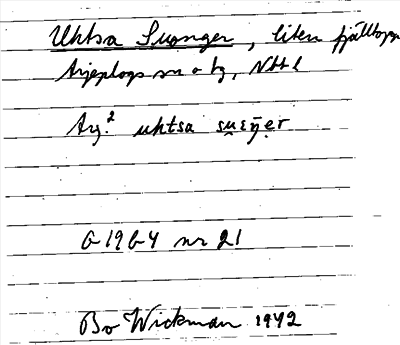 Uhtsa Suonger, liten fjälltopp
Arjeplogs sn o tg, Nbtl
Arj.² uhtsa su̯ɛŋ̄e̮r
G 1964 nr 21
Bo Wickman 1942